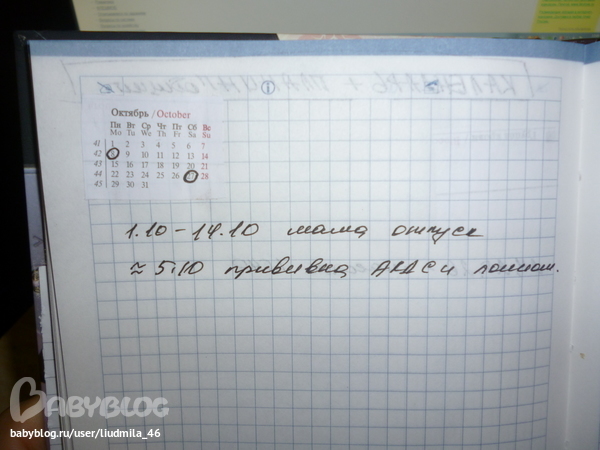 Октябрь / October
Пн Вт Ср Чт Пт Сб Вс
Mo Tu We Th Fr Sa Su
41 1 2 3 4 5 6 7
42 8 9 10 11 12 13 14
43 15 16 17 18 19 20 21
44 22 23 24 25 26 27 28
45 29 30 31
1.10 – 14.10 мама отпуск
≈ 5.10 прививка АКДС и полиом.
BABYBLOG
babyblog.ru/user/liudmila_46